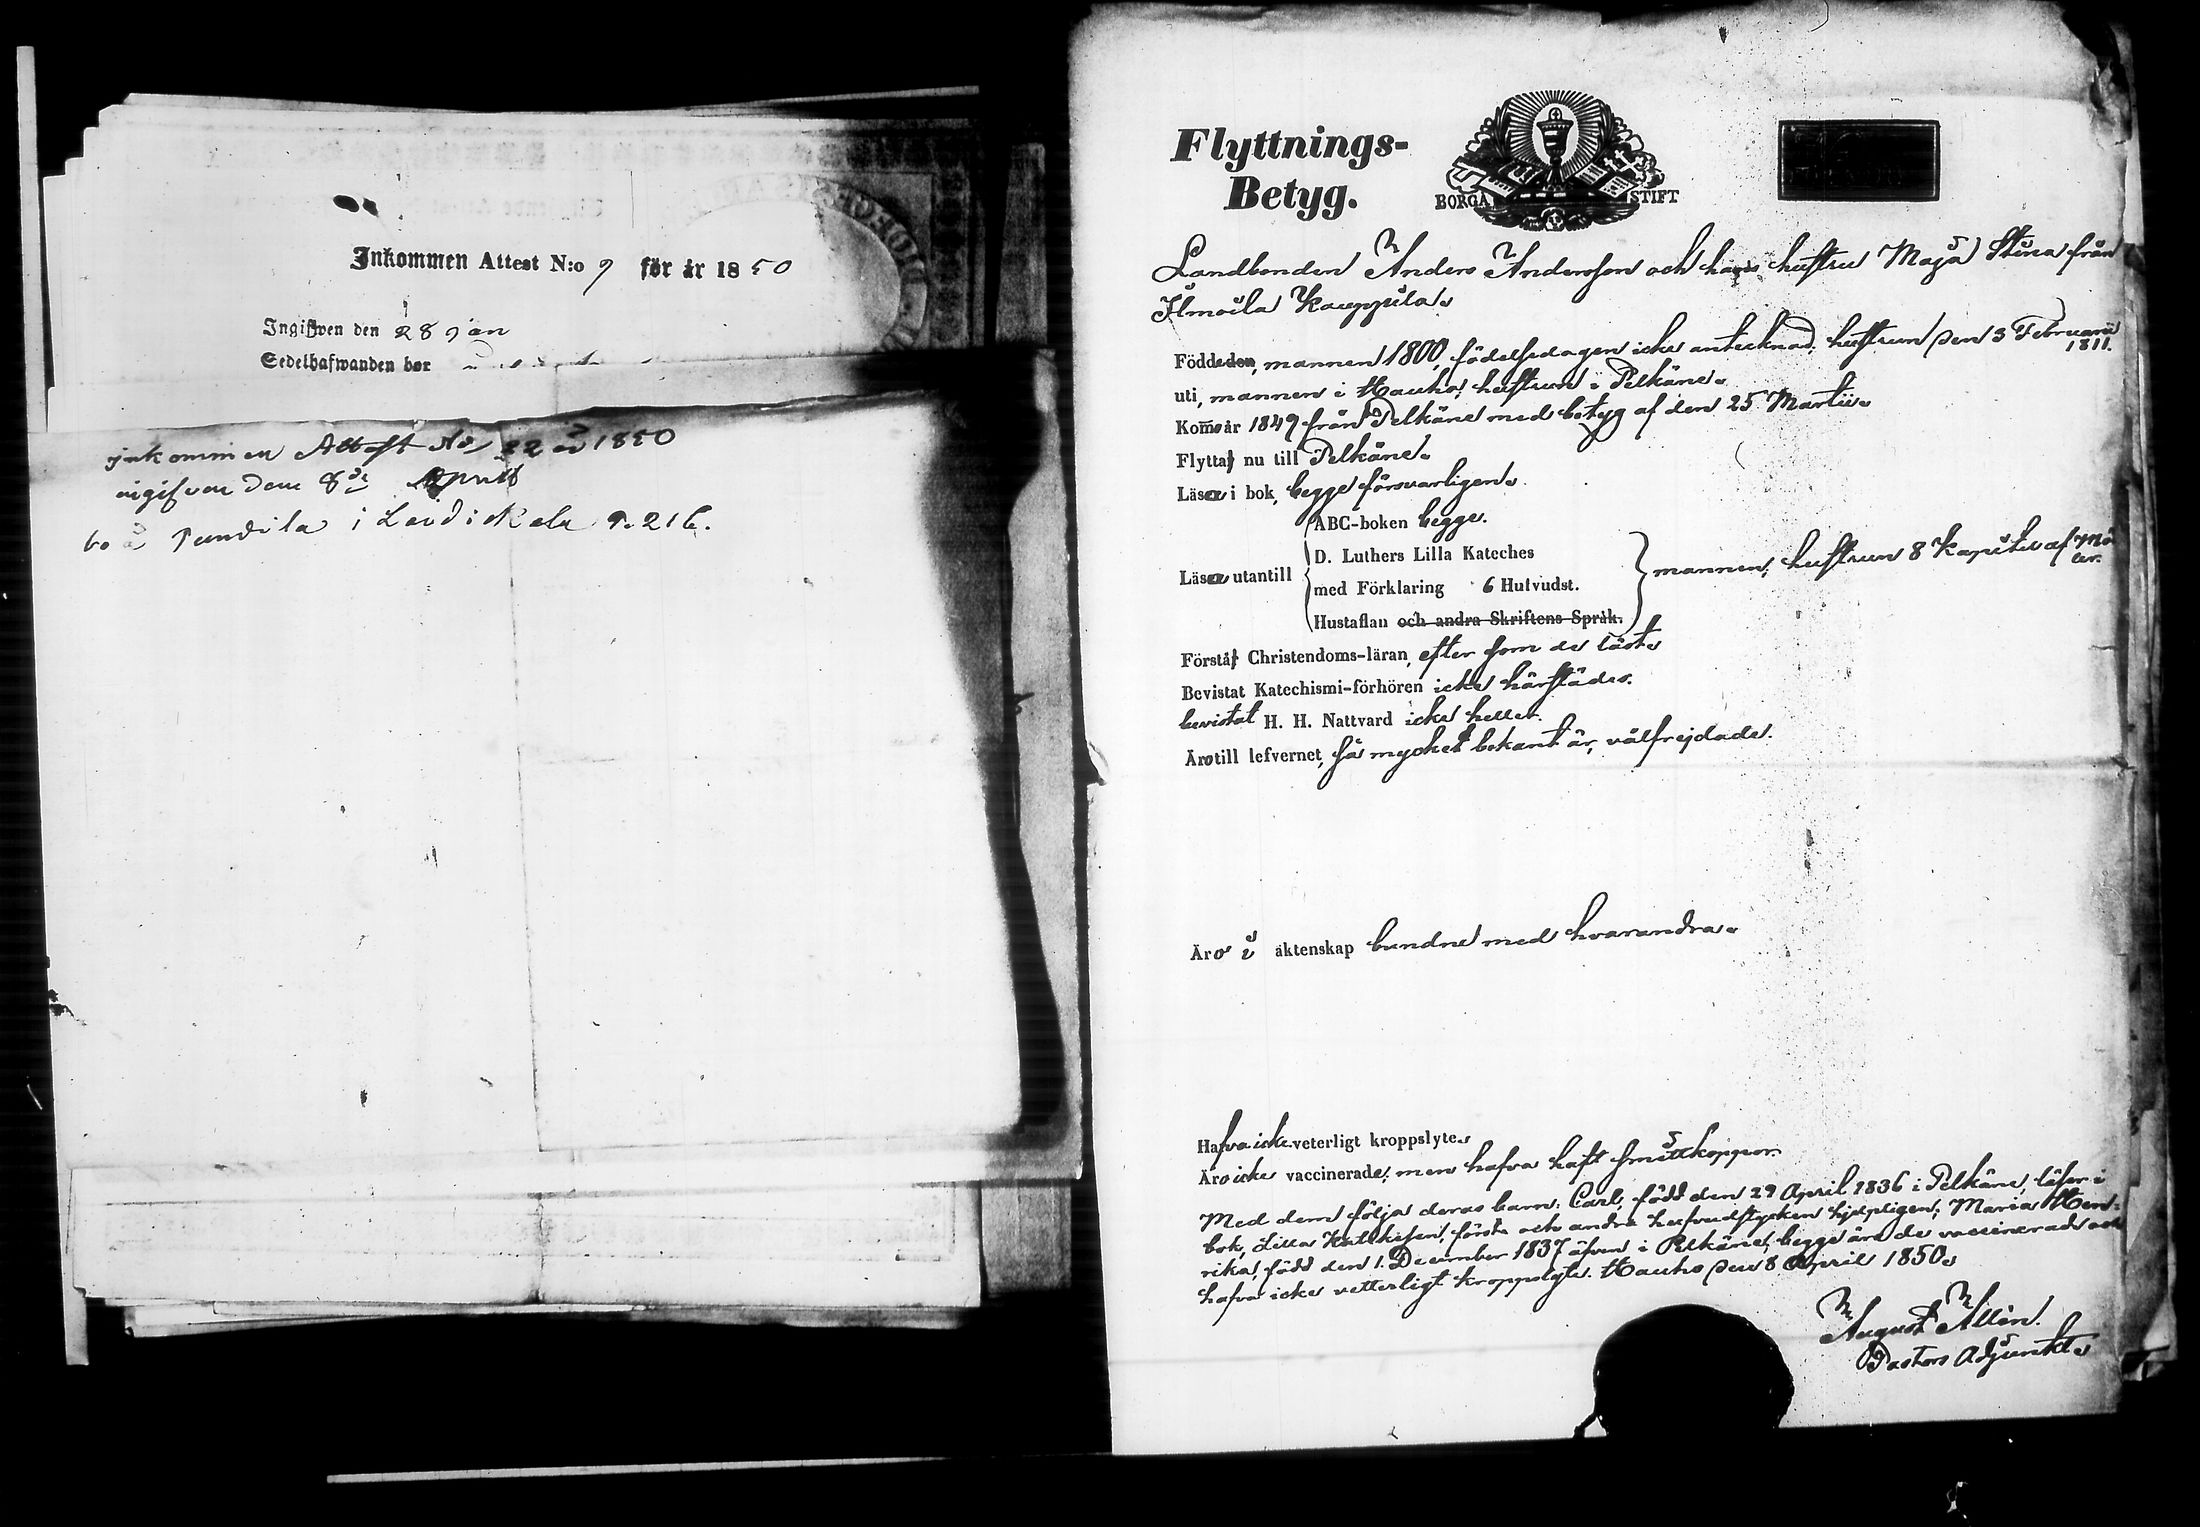 Inkommen Attest N:o 9 för år 1850
Ingifwen den 28 Jan
Sedelhafwanden bor
inkommen Attest No 22 år 1850
ingifven den 8de April
bo å Pundila i Laudickala P. 216.
Flyttnings-
Betyg.
BORGÅ STIFT
Landbonden Anders Andersson och hans hustru Maja Stina från
Ilmoila Kauppila.
Födde den, mannen 1800, födelsedagen icke antecknad; hustrun den 3 Februarii
1811.
uti, mannen i Hauho; hustrun i Pelkäne.
Kommo år 1849 från Pelkäne med betyg af den 25 Martii.
Flytta nu till Pelkäne.
Läsa i bok, begge försvarligen.
ABC-boken begge.
Läsa utantill
D. Luthers Lilla Kateches
med Förklaring 6 Hufvudst.
Hustaflan och andra Skriftens Språk.
mannen; hustrun 8 Kapitel af Mö
ler.
Förstå Christendoms-läran, efter som de läst.
Bevistat Katechismi-förhören icke härstädes.
bevistat H. H. Nattvard icke heller.
Äro till lefvernet, så mycket bekant är, välfrejdade.
Äro i äktenskap bundne med hvarandra.
Hafva icke veterligt kroppslyte.
Äro icke vaccinerade; men hafva haft smittkoppor.
Med dem följa deras barn: Carl, född den 29 April 1836 i Pelkäne, läser i
bok, Lilla Katekesen, första och andra hufvudstycken hjelpligen; Maria Hen-
rika, född den 1. December 1837 äfven i Pelkäne; begge äro de vaccinerade och
hafva icke vetterligt kroppslyte. Hauho den 8 April 1850.
August Allén.
Pastors Adjunkt.